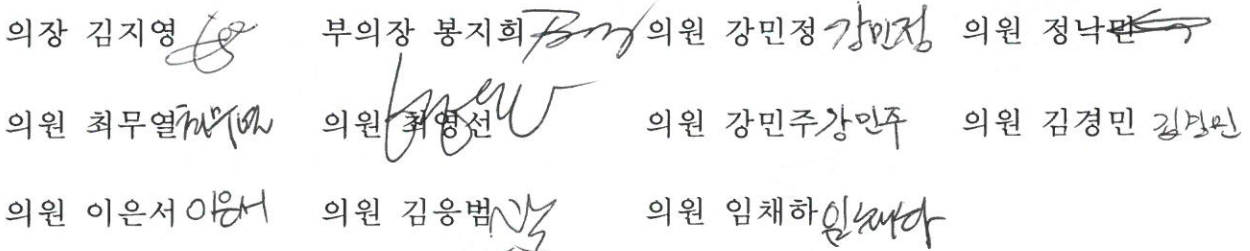 의장 김지영 부의장 봉지희 의원 강민정 강민정 의원 정낙민
의원 최무열 최무열 의원 최영선 의원 강민주 강민주 의원 김경민 김경민
의원 이은서 이은서 의원 김응범 의원 임채하 임채하